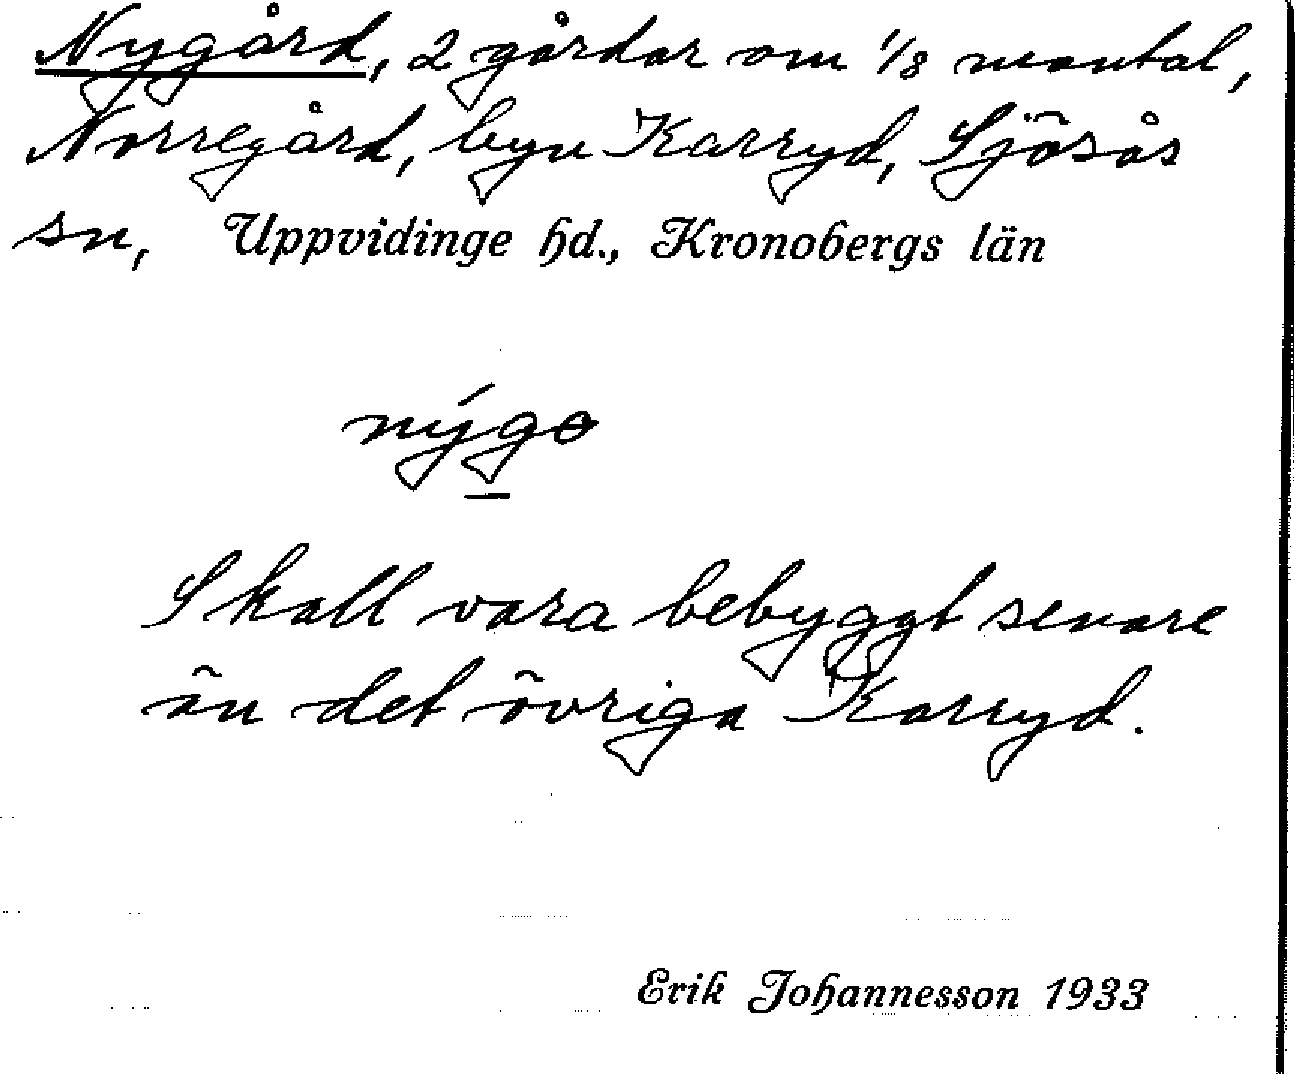 Nygård, 2 gårdar om 1/8 mantal,
Norregård, byn Karryd, Sjösås
sn, Uppvidinge hd., Kronobergs län
nýgɵ
Skall vara bebyggt senare
än det övriga Karryd.
Erik Johannesson 1933